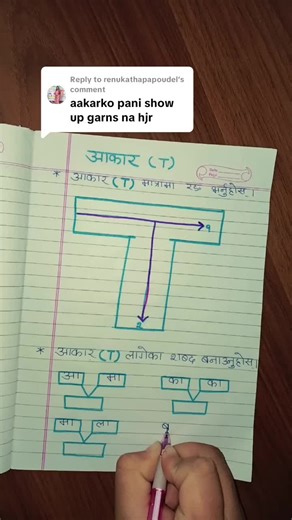 Reply to renukathapapoudel's
comment
aakarko pani show
up garns na hjr
आकार (T)
* आकार (T) मात्रामा रङ भर्नुहोस् ।
१
२
* आकार (T) लागेका शब्द बनाउनुहोस् ।
आ मा का का
मा ला ब